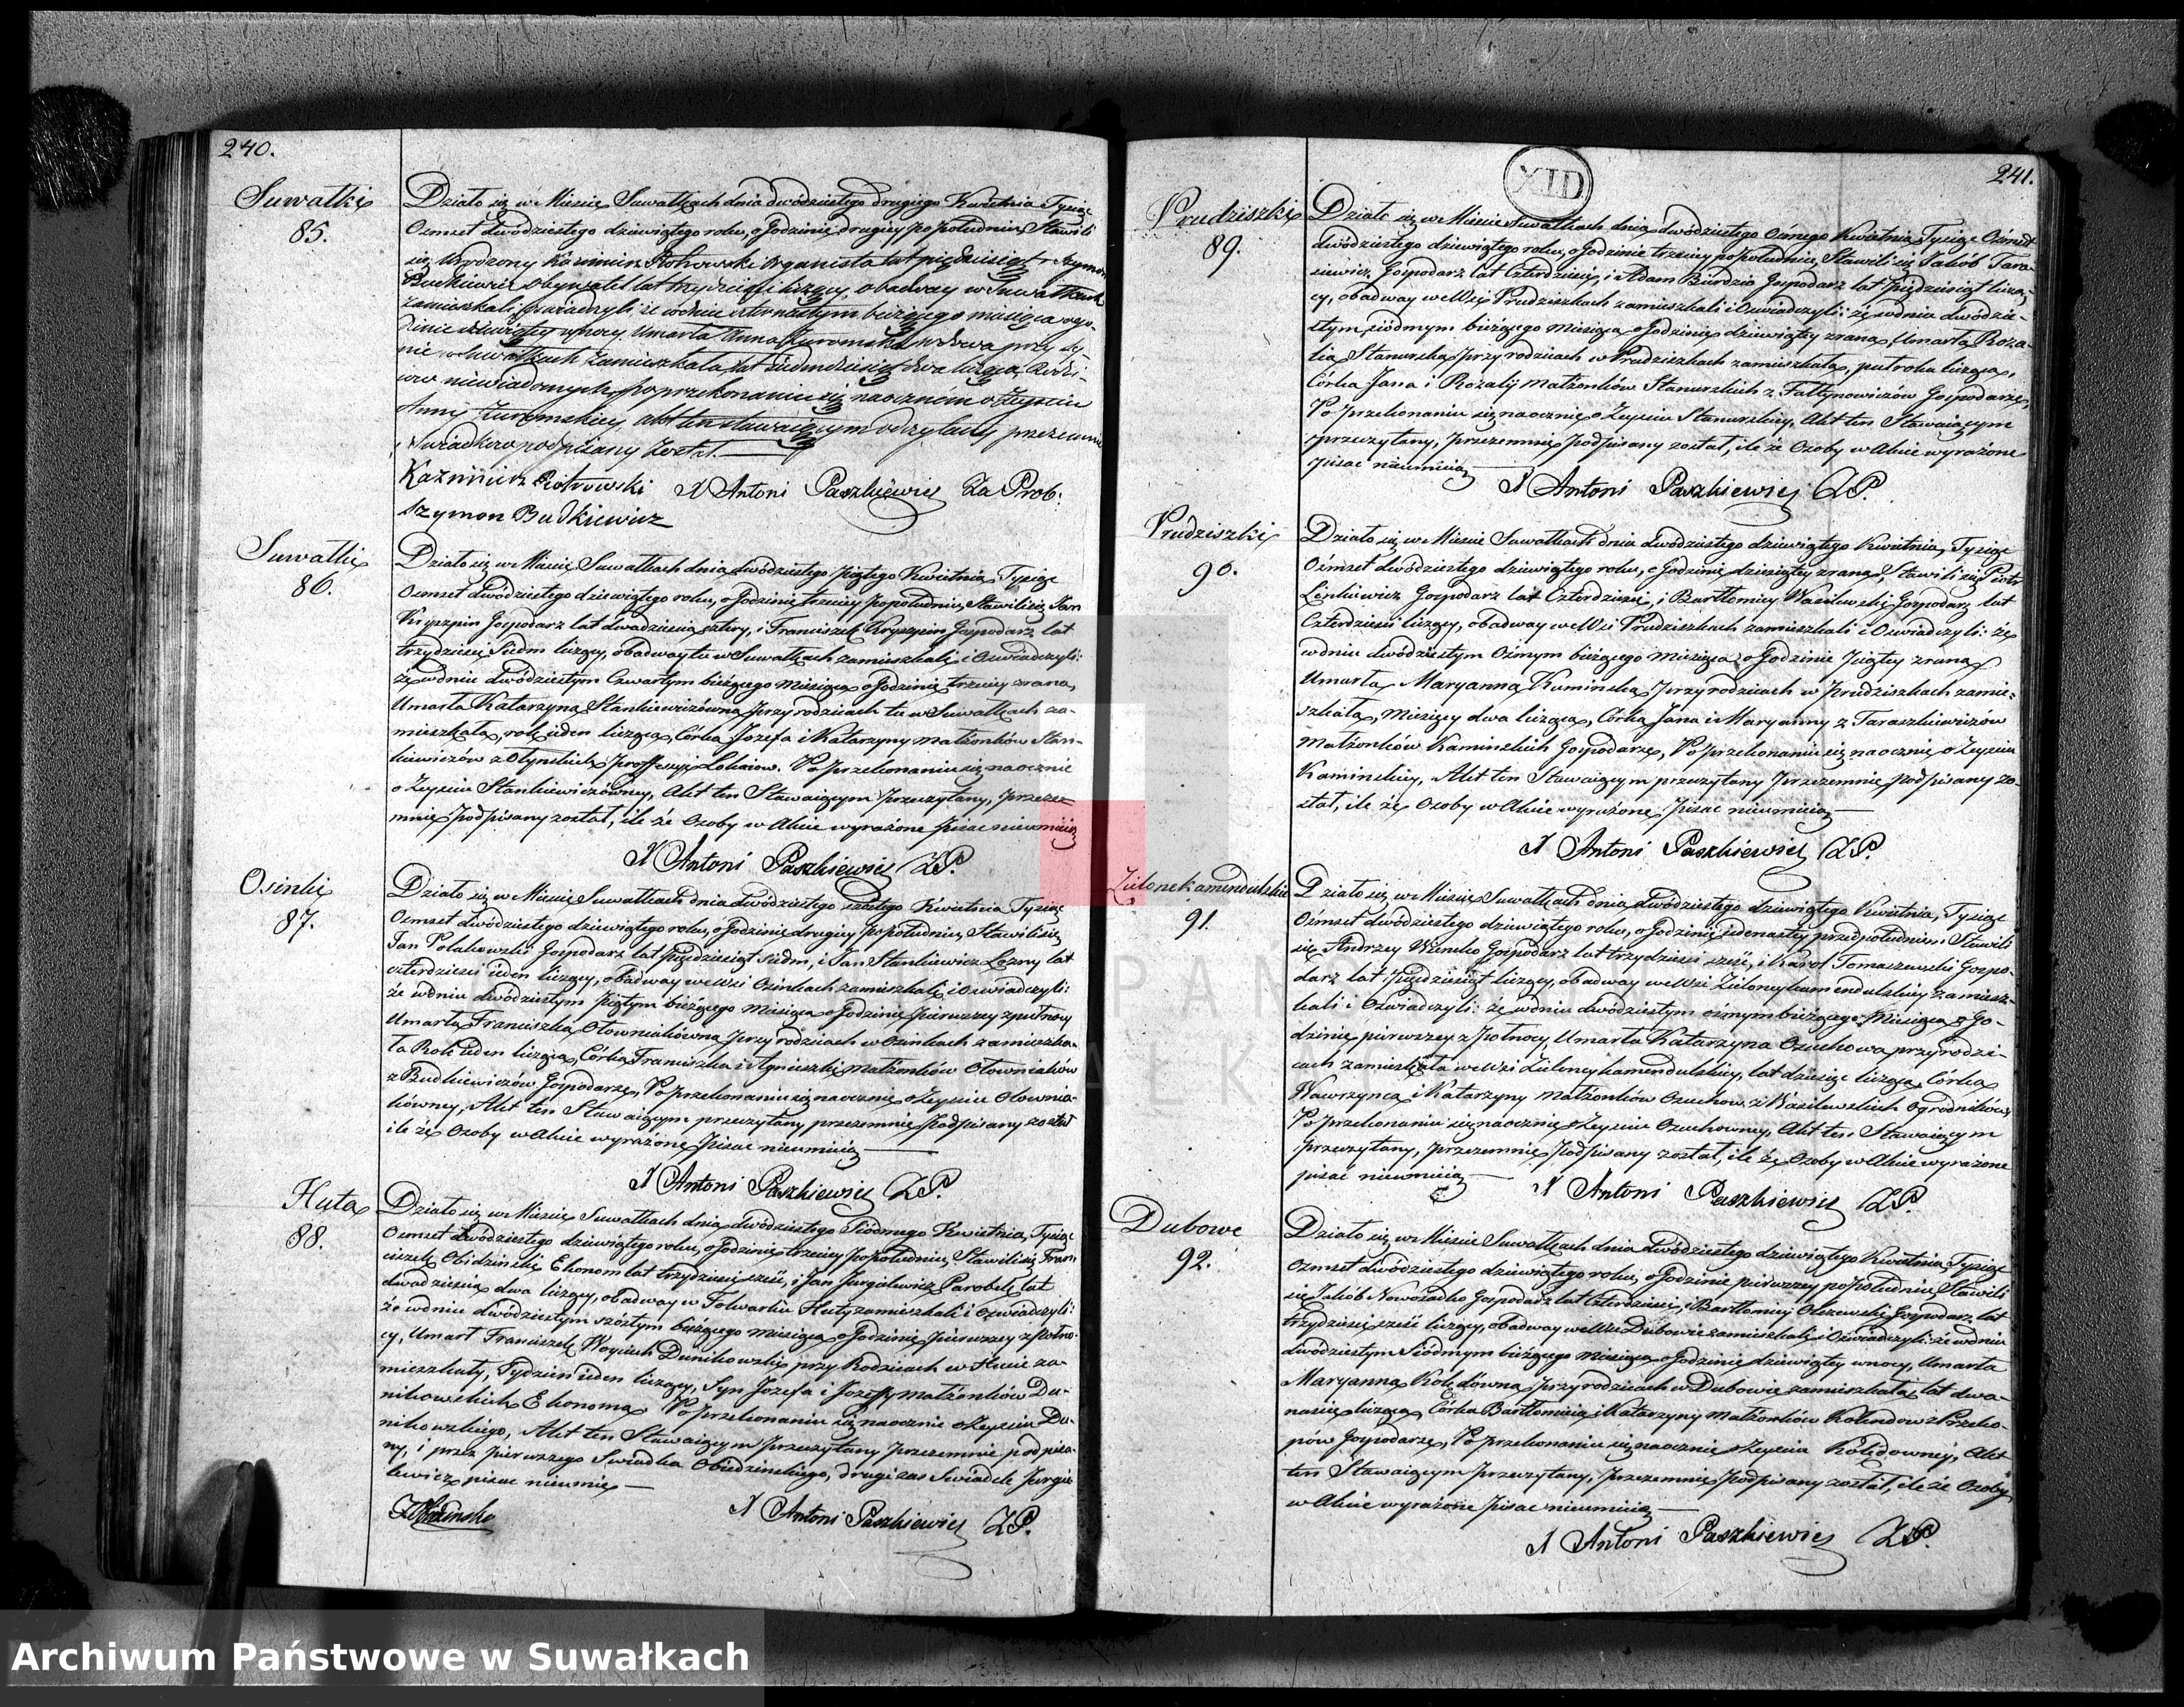 240.
Suwałki
85.
Działo się w Mieście Suwałkach dnia dwódziestego drugiego Kwietnia Tysiąc
Ośmset dwódziestego dziewiątego roku, o Godzinie drugiey popołudniu Stawili
się Urodzony Kazimierz Piotrowski Organista lat pięćdziesiąt i Szymon
Budkiewicz Obywatel lat liczący, obadway w Suwałkach
zamieszkali, i oświadczyli iż w dniu czternastym bieżącego miesiąca o go-
dzinie dziewiątey w nocy, Umarła Anna Żuromska wdowa przy Sy-
nie w Suwałkach zamieszkała lat siedmdziesiąt dwa licząca, Rodzi-
ców niewiadomych, po przekonaniu się naocznem o Zeyściu
Anny Żuromskiey, akt ten stawaiącym odczytany przezemnie
i Swiadków podpisany został.
Kaźmierz Piotrowski X Antoni Paszkiewicz Za Prob:
Szymon Budkiewicz
Suwałki
86.
Działo się w Mieście Suwałkach dnia dwódziestego piątego Kwietnia Tysiąc
Ośmset dwódziestego dziewiątego roku, o Godzinie trzeciey popołudniu, Stawili się Jan
Kryszpin Gospodarz lat dwadzieścia cztery, i Franciszek Kryszpin Gospodarz lat
trzydzieści Siedm liczący, obadway tu w Suwałkach zamieszkali i Oświadczyli:
że w dniu dwódziestym Czwartym bieżącego Miesiąca o Godzinie trzeciey zrana,
Umarła Katarzyna Stankiewiczówna przy rodzicach tu w Suwałkach za-
mieszkała, rok ieden licząca, Córka Jozefa i Katarzyny małżonków Stan-
kiewiczów z Olynskich, proffessyi Lokaiow. Po przekonaniu się naocznie
o Zeyściu Stankiewiczówney, Akt ten Stawaiącym przeczytany, przeze-
mnie podpisany został, ile że Osoby w Akcie wyrażone pisac nieumieią
X Antoni Paszkiewicz ZP.
Osinki
87.
Działo się w Mieście Suwałkach dnia dwódziestego szóstego Kwietnia Tysiąc
Ośmset dwódziestego dziewiątego roku, o Godzinie drugiey popołudniu, Stawili się
Jan Polakowski Gospodarz lat pięćdziesiąt siedm, i Jan Stankiewicz Lozny lat
czterdzieści ieden liczący, obadway we Wsi Osinkach zamieszkali, i Oświadczyli:
że w dniu dwódziestym piątym bieżącego Miesiąca o Godzinie pierwszey z pułnocy
Umarła Franciszka Ołowniakówna przy rodzicach w Osinkach zamieszka-
ła Rok ieden licząca, Córka Franciszka i Agnieszki małżonków Ołowniaków
z Budkiewiczów Gospodarzy, Po przekonaniu się naocznie o Zeyściu Ołownia-
kówney, Akt ten Stawaiącym przeczytany przezemnie podpisany został
ile że Osoby w Akcie wyrażone pisac nieumieią
X Antoni Paszkiewicz ZP.
Huta
88.
Działo się w Mieście Suwałkach dnia dwódziestego Siódmego Kwietnia, Tysiąc
Ośmset dwódziestego dziewiątego roku, o Godzinie trzeciey popołudniu, Stawili się Fran-
ciszek Obidzinski Ekonom lat trzydzieści sześć, i Jan Jurgielewicz Parobek lat
dwadzieścia dwa liczący, obadway w Folwarku Huty zamieszkali i Oświadczyli:
że w dniu dwódziestym szóstym bieżącego miesiąca o Godzinie pierwszey z pułno-
cy, Umarł Franciszek Woyciech Dunikowski przy Rodzicach w Hucie za-
mieszkały, Tydzień ieden liczący, Syn Jozefa i Jozefy małżonków Du-
nikowskich Ekonoma. Po przekonaniu się naocznie o Zeyściu Du-
nikowskiego, Akt ten Stawaiącym przeczytany przezemnie podpisa-
ny, i przez pierwszego Swiadka Obiedzinskiego, drugi zas Swiadek Jurgie-
lewicz pisac nieumie
X Antoni Paszkiewicz ZP.
XID
241.
Prudziszki
89.
Działo się w Mieście Suwałkach dnia dwódziestego Osmego Kwietnia Tysiąc Ośmset
dwódziestego dziewiątego roku, o Godzinie trzeciey popołudniu, Stawili się Jakób Tara-
siewicz Gospodarz lat Czterdzieści, i Adam Burdzio Gospodarz lat pięćdziesiąt liczą-
cy, obadway we Wsi Prudziszkach zamieszkali i Oświadczyli: że w dniu dwódzie-
stym siódmym bieżącego Miesiąca o Godzinie dziewiątey zrana, Umarła Roza-
lia Stanurska przy rodzicach w Prudziszkach zamieszkała, pułroka licząca,
Córka Jana i Rozalij małżonków Stanurskich z Faltynowiczów Gospodarzy,
Po przekonaniu się naocznie o Zeyściu Stanurskiey, Akt ten Stawaiącym
przeczytany, przezemnie podpisany został, ile że Osoby w Akcie wyrażone
pisac nieumieią
X Antoni Paszkiewicz ZP.
Prudziszki
90.
Działo się w Mieście Suwałkach dnia dwódziestego dziewiątego Kwietnia, Tysiąc
Ośmset dwódziestego dziewiątego roku, o Godzinie dziesiątey zrana, Stawili się Piotr
Linkiewicz Gospodarz lat Czterdzieści, i Bartłomiey Wasilewski Gospodarz lat
Czterdzieści liczący, obadway we Wsi Prudziszkach zamieszkali i Oswiadczyli: że
w dniu dwódziestym Ośmym bieżącego Miesiąca o Godzinie piątey zrana
Umarła Maryanna Kaminska przy rodzicach w Prudziszkach zamie-
szkała, Miesięcy dwa licząca, Córka Jana i Maryanny z Taraszkiewiczów
Małżonków Kaminskich Gospodarzy, Po przekonaniu się naocznie o Zeyściu
Kaminskiey, Akt ten Stawaiącym przeczytany przezemnie podpisany zo-
stał, ile że Osoby w Akcie wyrażone pisac nieumieią
X Antoni Paszkiewicz ZP.
Zielone kamendulskie
91.
Działo się w Mieście Suwałkach dnia dwódziestego dziewiątego Kwietnia, Tysiąc
Ośmset dwódziestego dziewiątego roku, o Godzinie iedenastey przedpołudniem Stawili
się Andrzey Gospodarz lat trzydzieści sześć, i Karol Tomaszewski Gospo-
darz lat pięćdziesiąt liczący, obadway we Wsi Zieloney kamendulskiey zamiesz-
kali i Oświadczyli: że w dniu dwódziestym ośmym bieżącego Miesiąca o Go-
dzinie pierwszey z północy, Umarła Katarzyna Ozuchowa przy rodzi-
cach zamieszkała we Wsi Zieloney kamendulskiey, lat dziesięć licząca, Córka
Wawrzynca i Katarzyny małżonków Ozuchow z Wasilewskich Ogrodników
Po przekonaniu się naocznie o Zeyściu Ozuchowney, Akt ten Stawaiącym
przeczytany, przezemnie podpisany został, ile że Osoby w Akcie wyrażone
pisać nieumieią
X Antoni Paszkiewicz ZP.
Dubowe
92.
Działo się w Mieście Suwałkach dnia dwódziestego dziewiątego Kwietnia Tysiąc
Ośmset dwódziestego dziewiątego roku, o Godzinie pierwszey popołudniu, Stawili
się Jakób Nowosadko Gospodarz lat Czterdzieści, i Bartłomiey Olszewski Gospodarz lat
trzydzieści sześć liczący, obadway we Wsi Dubowie zamieszkali i Oświadczyli: że w dniu
dwódziestym Siódmym bieżącego Miesiąca o Godzinie dziewiątey w nocy, Umarła
Maryanna Kolędówna przy rodzicach w Dubowie zamieszkała lat dwa-
naście licząca, Córka Bartłomieia i Katarzyny małżonków Kolendow z Przeko-
pów Gospodarzy, Po przekonaniu się naocznie o Zeyściu Kolędowney, Akt
ten Stawaiącym przeczytany, przezemnie podpisany został, ile że Osoby
w Akcie wyrażone pisac nieumieią
X Antoni Paszkiewicz ZP.
Archiwum Państwowe w Suwałkach